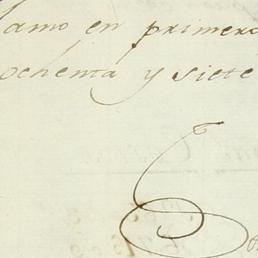 lamo en primero
ochenta y siete